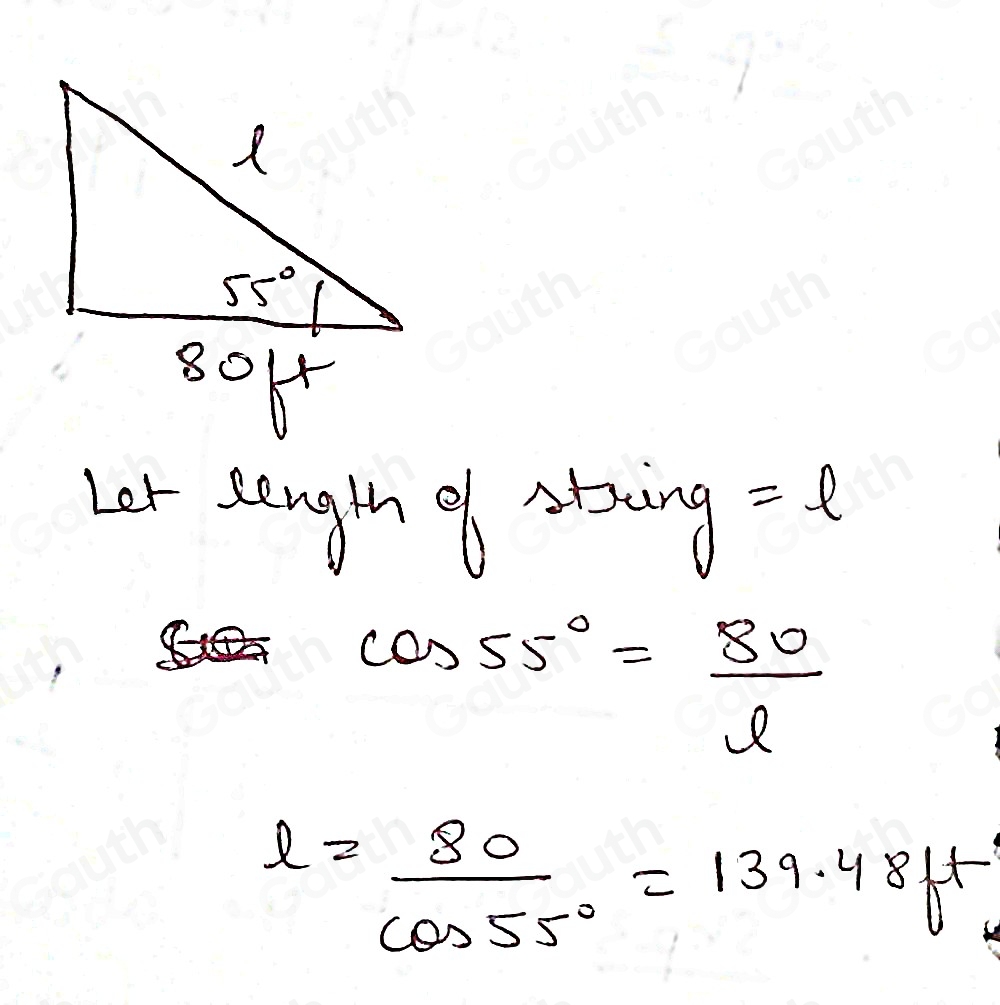 l
55°
80ft
Let length of string = l
cos 55° = 80/l
l = 80/cos 55° = 139.48ft
Gauth